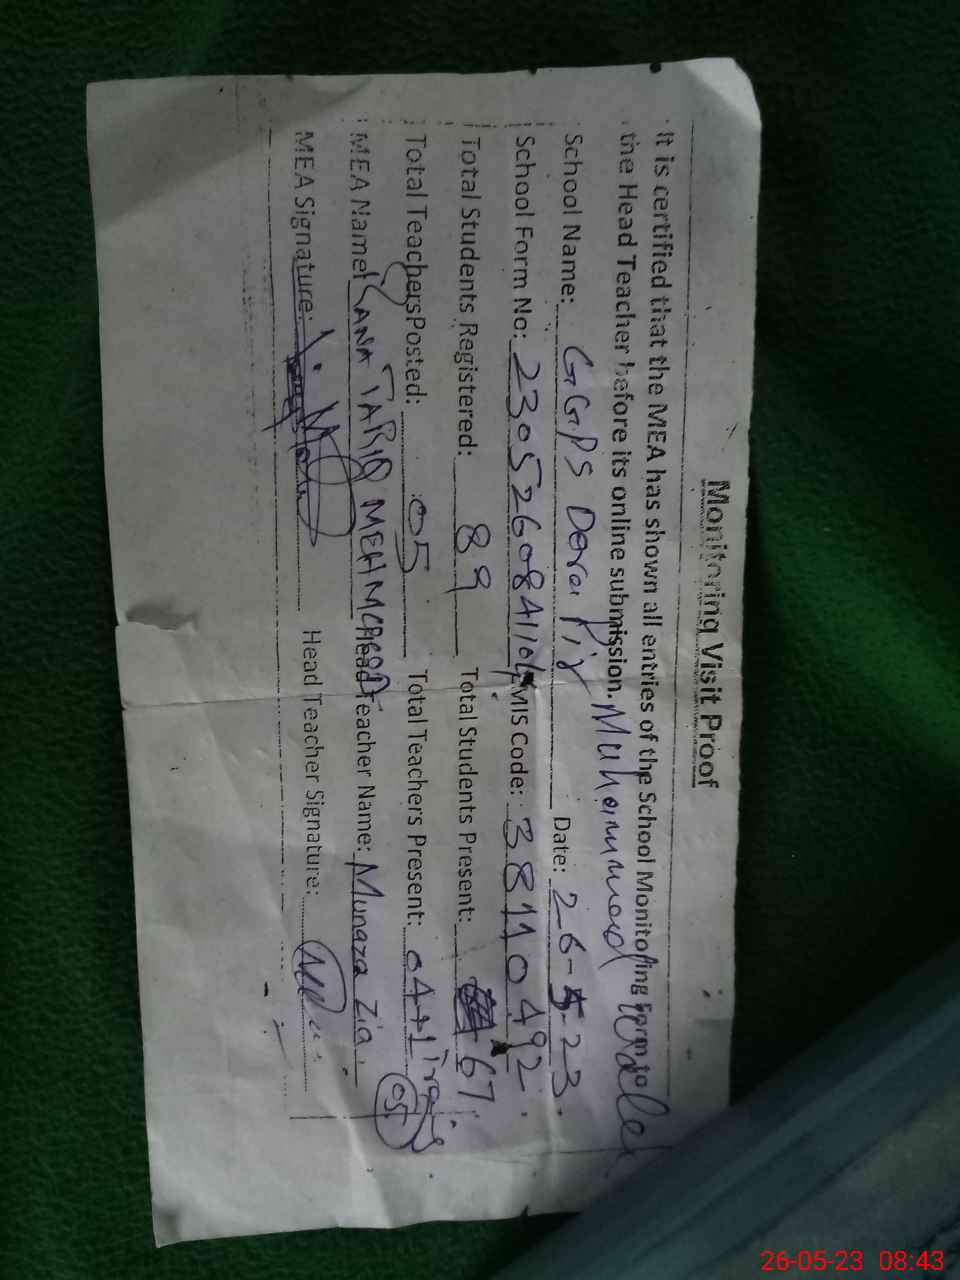 Monitoring Visit Proof
It is certified that the MEA has shown all entries of the School Monitoring Form to
the Head Teacher before its online submission. Muhammad
School Name: GGPS Dera Pir Date: 26-5-23.
School Form No: 2305260841104 EMIS Code: 38110492
Total Students Registered: 89 Total Students Present: 67
Total Teachers Posted: 05 Total Teachers Present: 04+1
05
MEA Name: RANA TARIQ MEHMOOD Head Teacher Name: Munaza Zia
MEA Signature: Head Teacher Signature:
26-05-23 08:43